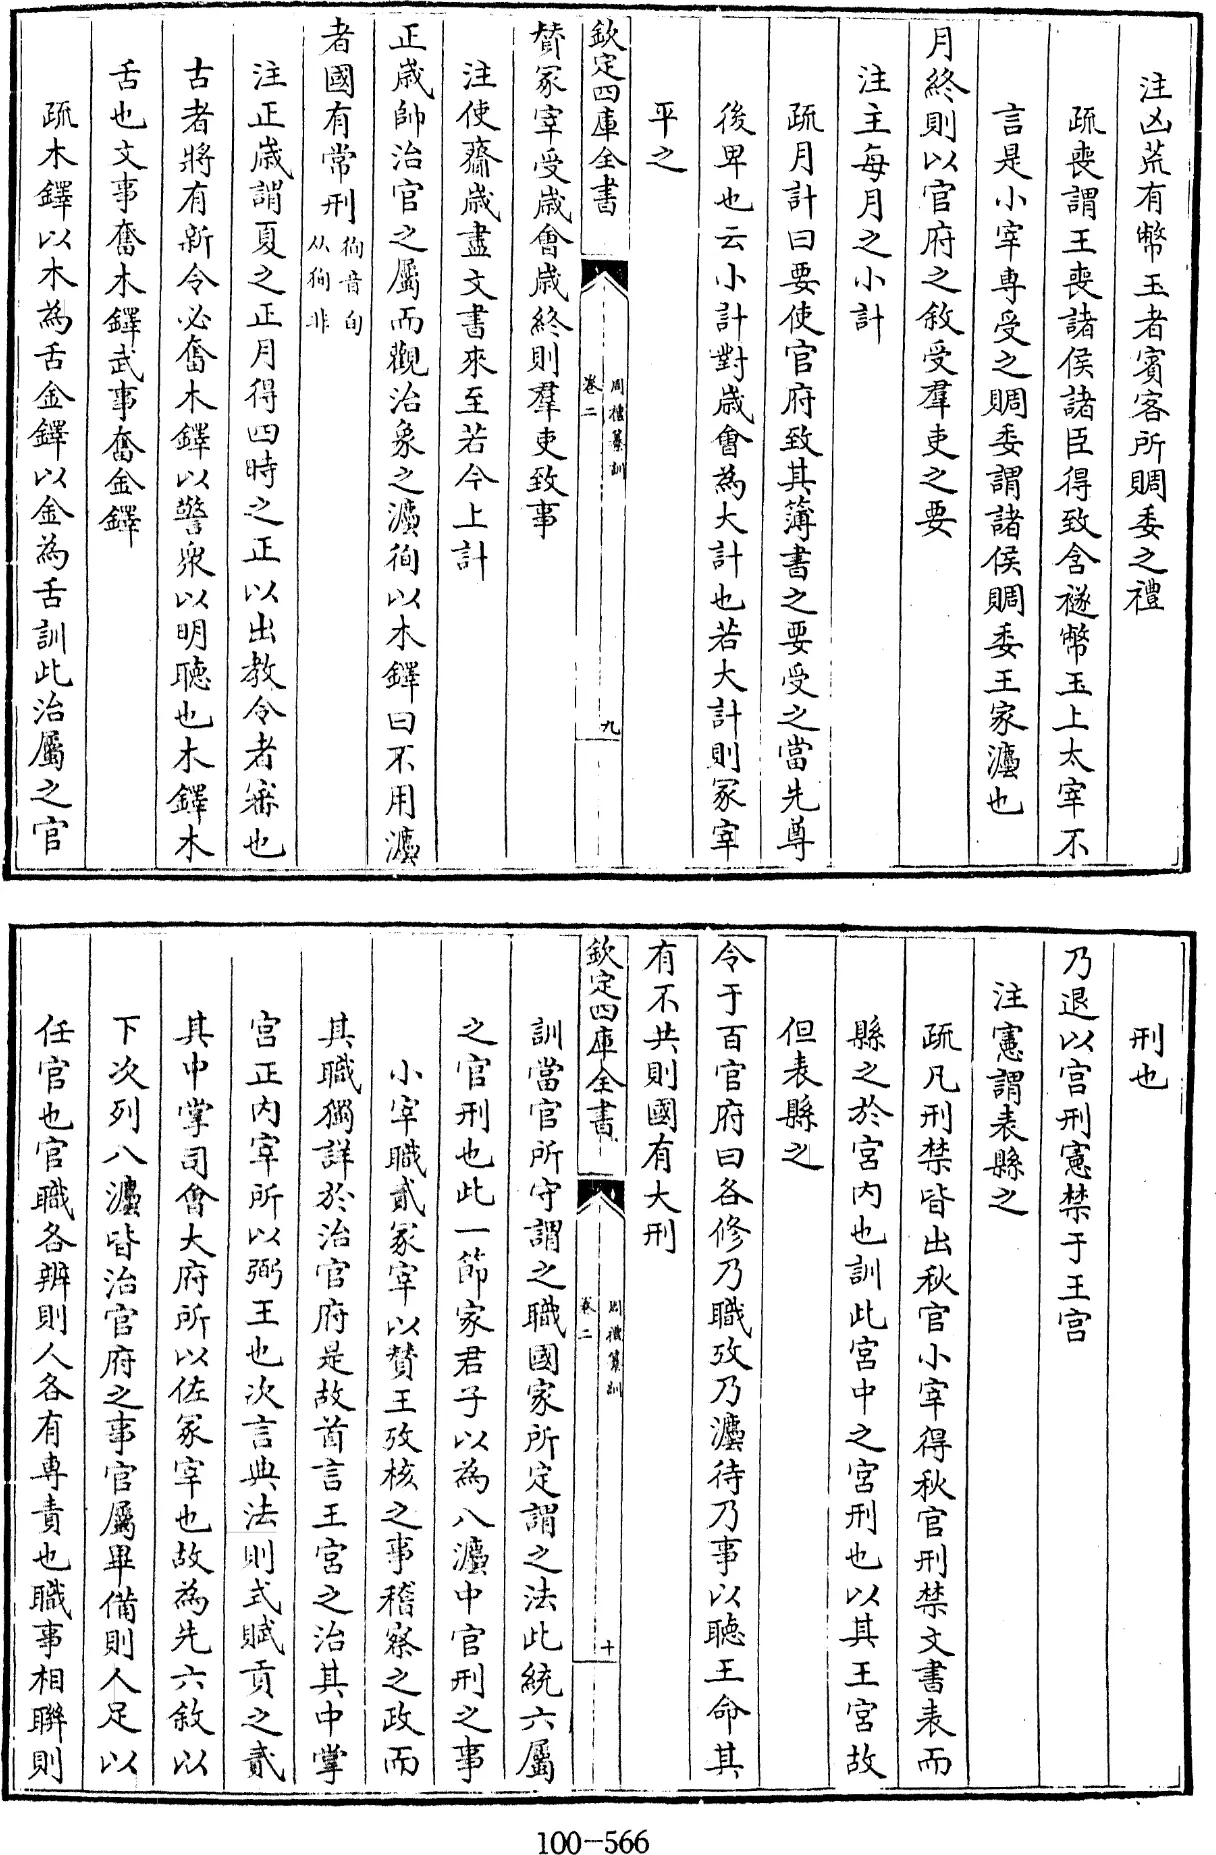 注凶荒有幣玉者賓客所賙委之禮
疏喪謂王喪諸侯諸臣得致含襚幣玉上太宰不
言是小宰專受之賙委謂諸侯賙委王家灋也
月終則以官府之敘受羣吏之要
注主每月之小計
疏月計曰要使官府致其簿書之要受之當先尊
後卑也云小計對歲會為大計也若大計則冡宰
平之
欽定四庫全書
周禮纂訓
卷二
九
贊冡宰受歲會歲終則羣吏致事
注使齎歲盡文書來至若今上計
正歲帥治官之屬而觀治象之灋徇以木鐸曰不用灋
者國有常刑
徇音旬
从狥非
注正歲謂夏之正月得四時之正以出教令者審也
古者將有新令必奮木鐸以警衆以明聽也木鐸木
舌也文事奮木鐸武事奮金鐸
疏木鐸以木為舌金鐸以金為舌訓此治屬之官
刑也
乃退以宫刑憲禁于王宫
注憲謂表縣之
疏凡刑禁皆出秋官小宰得秋官刑禁文書表而
縣之於宮内也訓此宮中之宮刑也以其王宮故
但表縣之
令于百官府曰各修乃職攷乃灋待乃事以聽王命其
有不共則國有大刑
欽定四庫全書
周禮纂訓
卷二
十
訓當官所守謂之職國家所定謂之法此統六屬
之官刑也此一節家君子以為八灋中官刑之事
小宰職貳冡宰以贊王攷核之事稽察之政而
其職獨詳於治官府是故首言王宮之治其中掌
宫正内宰所以弼王也次言典法則式賦貢之貳
其中掌司會大府所以佐冡宰也故為先六敘以
下次列八灋皆治官府之事官屬畢備則人足以
任官也官職各辨則人各有專責也職事相聯則
100-566